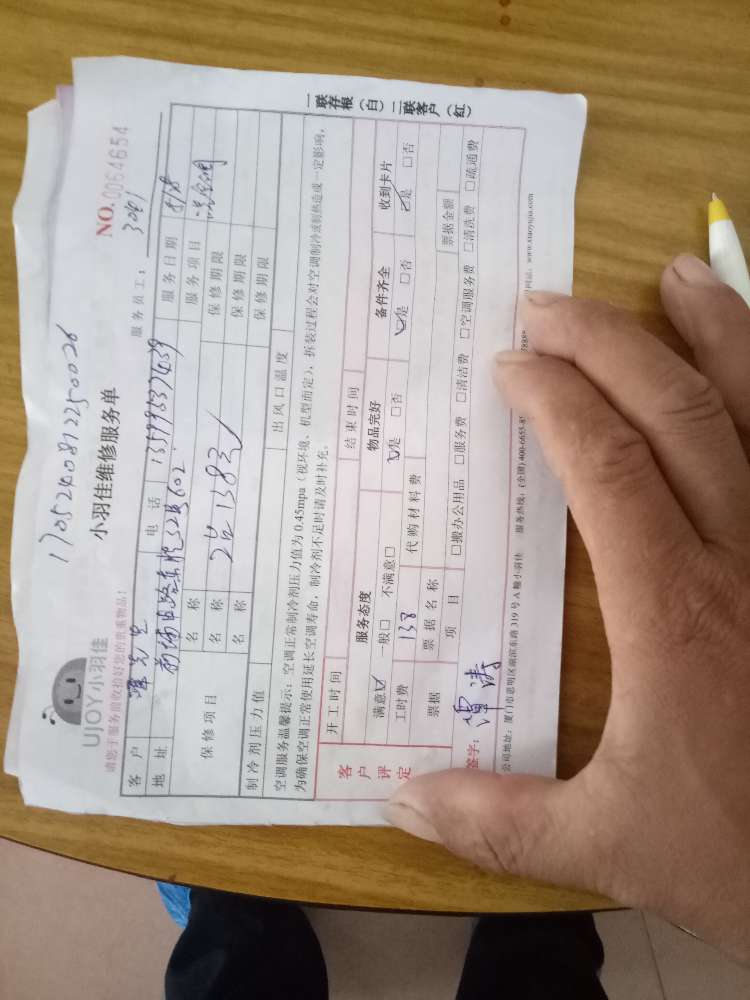 17052408122500026
UJOY小羽佳
小羽佳维修服务单
NO.0054654
请您于服务前收拾好您的贵重物品！
服务员工： 3061
客户 先生 电话 服务日期 8/28
地址 602 服务项目
保修项目 名称 保修期限
名称 保修期限
名称 保修期限
制冷剂压力值 出风口温度
空调服务温馨提示：空调正常制冷剂压力值为0.45mpa（视环境、机型而定），拆装过程会对空调制冷或制热造成一定影响，
为确保空调正常使用延长空调寿命，制冷剂不足时请及时补充。
客户评定 开工时间 结束时间
服务态度 物品完好 备件齐全 收到卡片
满意☑ 一般□ 不满意□ ☑是 □否 ☑是 □否 ☑是 □否
工时费 138 代购材料费
票据 票据名称 票据金额
项目 □搬办公用品 □服务费 □清洁费 □空调服务费 □清洗费 □疏通费
签字： 谭涛
公司地址：厦门市思明区湖滨东路319号A幢小羽佳 服务热线：(全国)400-6655-8 www.xiaoyujia.com
一联存根（白）二联客户（红）